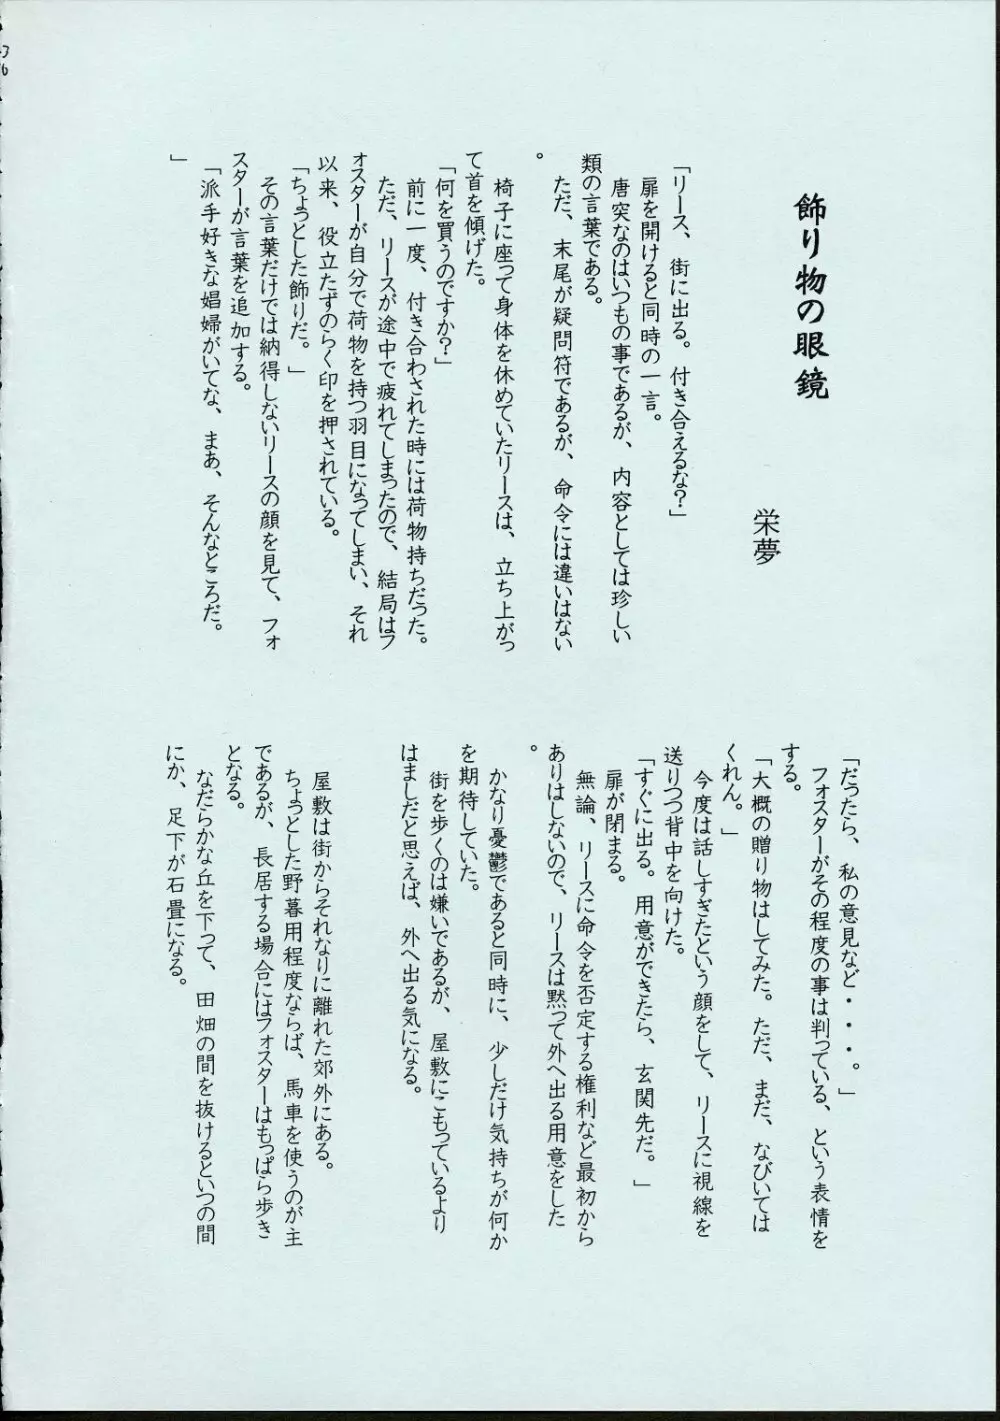 飾り物の眼鏡
栄夢
「リース、街に出る。付き合えるな?」
扉を開けると同時の一言。
唐突なのはいつもの事であるが、内容としては珍しい
類の言葉である。
ただ、末尾が疑問符であるが、命令には違いはない
。
椅子に座って身体を休めていたリースは、立ち上がっ
て首を傾げた。
「何を買うのですか?」
前に一度、付き合わされた時には荷物持ちだった。
ただ、リースが途中で疲れてしまったので、結局はフ
ォスターが自分で荷物を持つ羽目になってしまい、それ
以来、役立たずのらく印を押されている。
「ちょっとした飾りだ。」
その言葉だけでは納得しないリースの顔を見て、フォ
スターが言葉を追加する。
「派手好きな娼婦がいてな、まあ、そんなところだ。
」
「だったら、私の意見など・・・。」
フォスターがその程度の事は判っている、という表情を
する。
「大概の贈り物はしてみた。ただ、まだ、なびいては
くれん。」
今度は話しすぎたという顔をして、リースに視線を
送りつつ背中を向けた。
「すぐに出る。用意ができたら、玄関先だ。」
扉が閉まる。
無論、リースに命令を否定する権利など最初から
ありはしないので、リースは黙って外へ出る用意をした
。
かなり憂鬱であると同時に、少しだけ気持ちが何か
を期待していた。
街を歩くのは嫌いであるが、屋敷にこもっているより
はましだと思えば、外へ出る気になる。
屋敷は街からそれなりに離れた郊外にある。
ちょっとした野暮用程度ならば、馬車を使うのが主
であるが、長居する場合にはフォスターはもっぱら歩き
となる。
なだらかな丘を下って、田畑の間を抜けるといつの間
にか、足下が石畳になる。